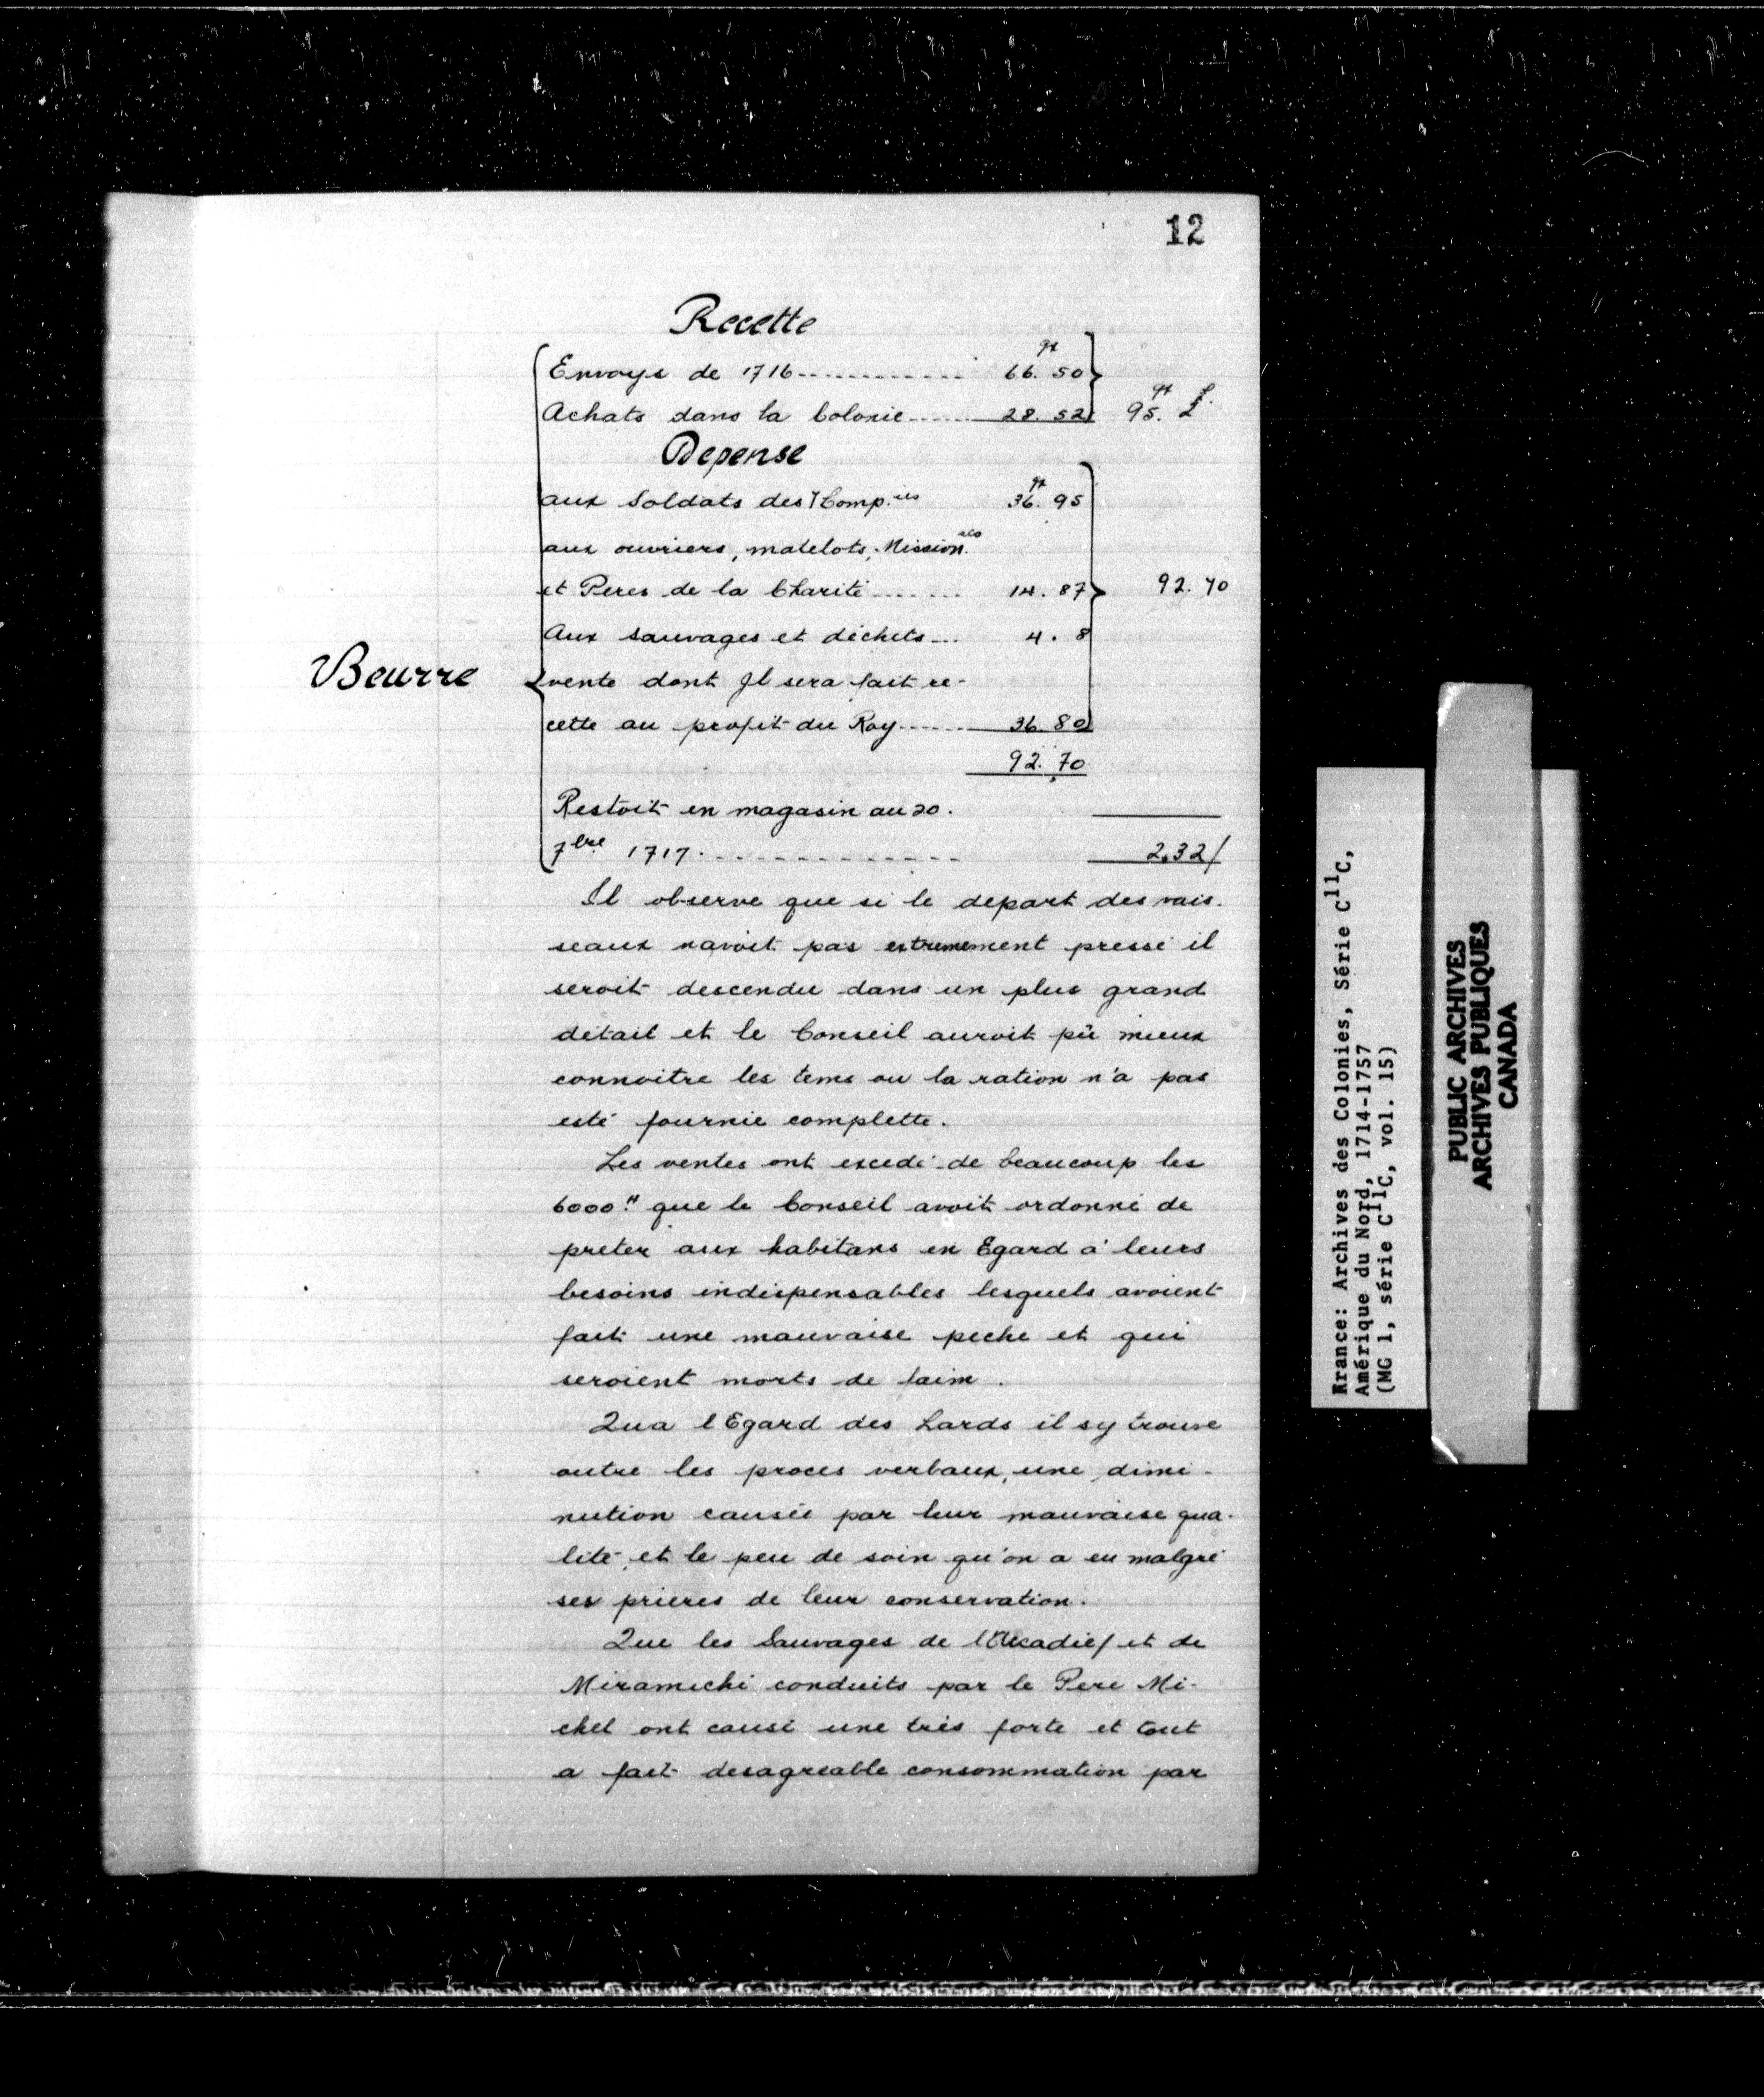 12
Recette
Envoys de 1716 ............ 66. 50 qx
Achats dans la Colonie ...... 28. 52 95. qx 2 £.
Depense
aux Soldats des 7 Comp.ies 36. 95 qx
aux ouvriers, matelots, Mission.res
et Peres de la Charité ....... 14. 87 92. 70
Aux sauvages et déchets ... 4. 8
Beurre
vente dont Il sera fait re-
cette au profit du Roy ...... 36. 80
92. 70
Restoit en magasin au 20.
7bre 1717. ............. 2,32/
Il observe que si le depart des vais-
seaux navoit pas extremement pressé il
seroit descendu dans un plus grand
detail et le Conseil auroit pû mieux
connoitre les tems ou la ration n'a pas
esté fournie complette.
Les ventes ont excedé de beaucoup les
6000.tt que le Conseil avoit ordonné de
preter aux habitans en Egard à leurs
besoins indispensables lesquels avoient
fait une mauvaise peche et qui
seroient morts de faim.
Qua l'Egard des Lards il sy trouve
outre les proces verbaux, une dimi-
nution causée par leur mauvaise qua-
lité, et le peu de soin qu'on a eu malgré
ses prieres de leur conservation.
Que les Sauvages de l'Acadie/ et de
Miramichi conduits par le Pere Mi-
chel ont causé une très forte et tout
a fait desagreable consommation par
Rrance: Archives des Colonies, Série C11C,
Amérique du Nord, 1714-1757
(MG 1, série C11C, vol. 15)
PUBLIC ARCHIVES
ARCHIVES PUBLIQUES
CANADA